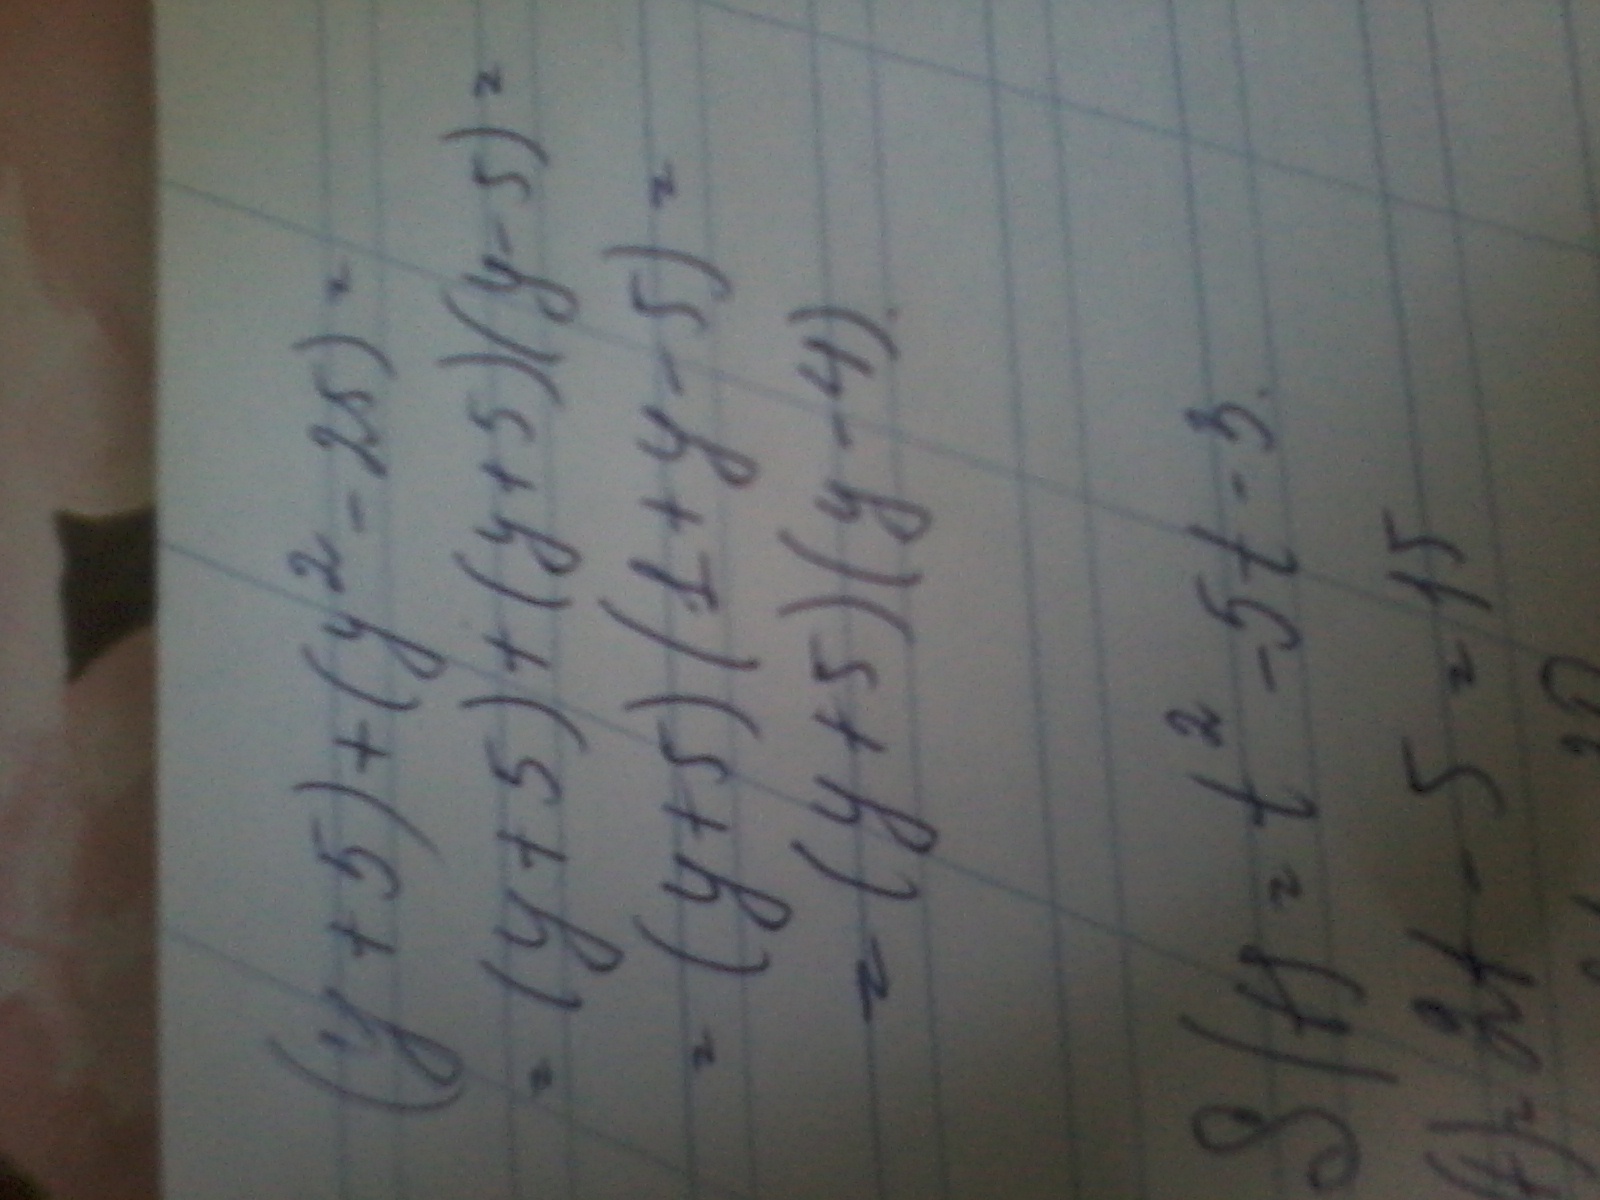 (y+5)+(y²-25)=
=(y+5)+(y+5)(y-5)=
=(y+5)(1+y-5)=
=(y+5)(y-4).
S(t)=t²-5t-3.
(t)=2t-5=15